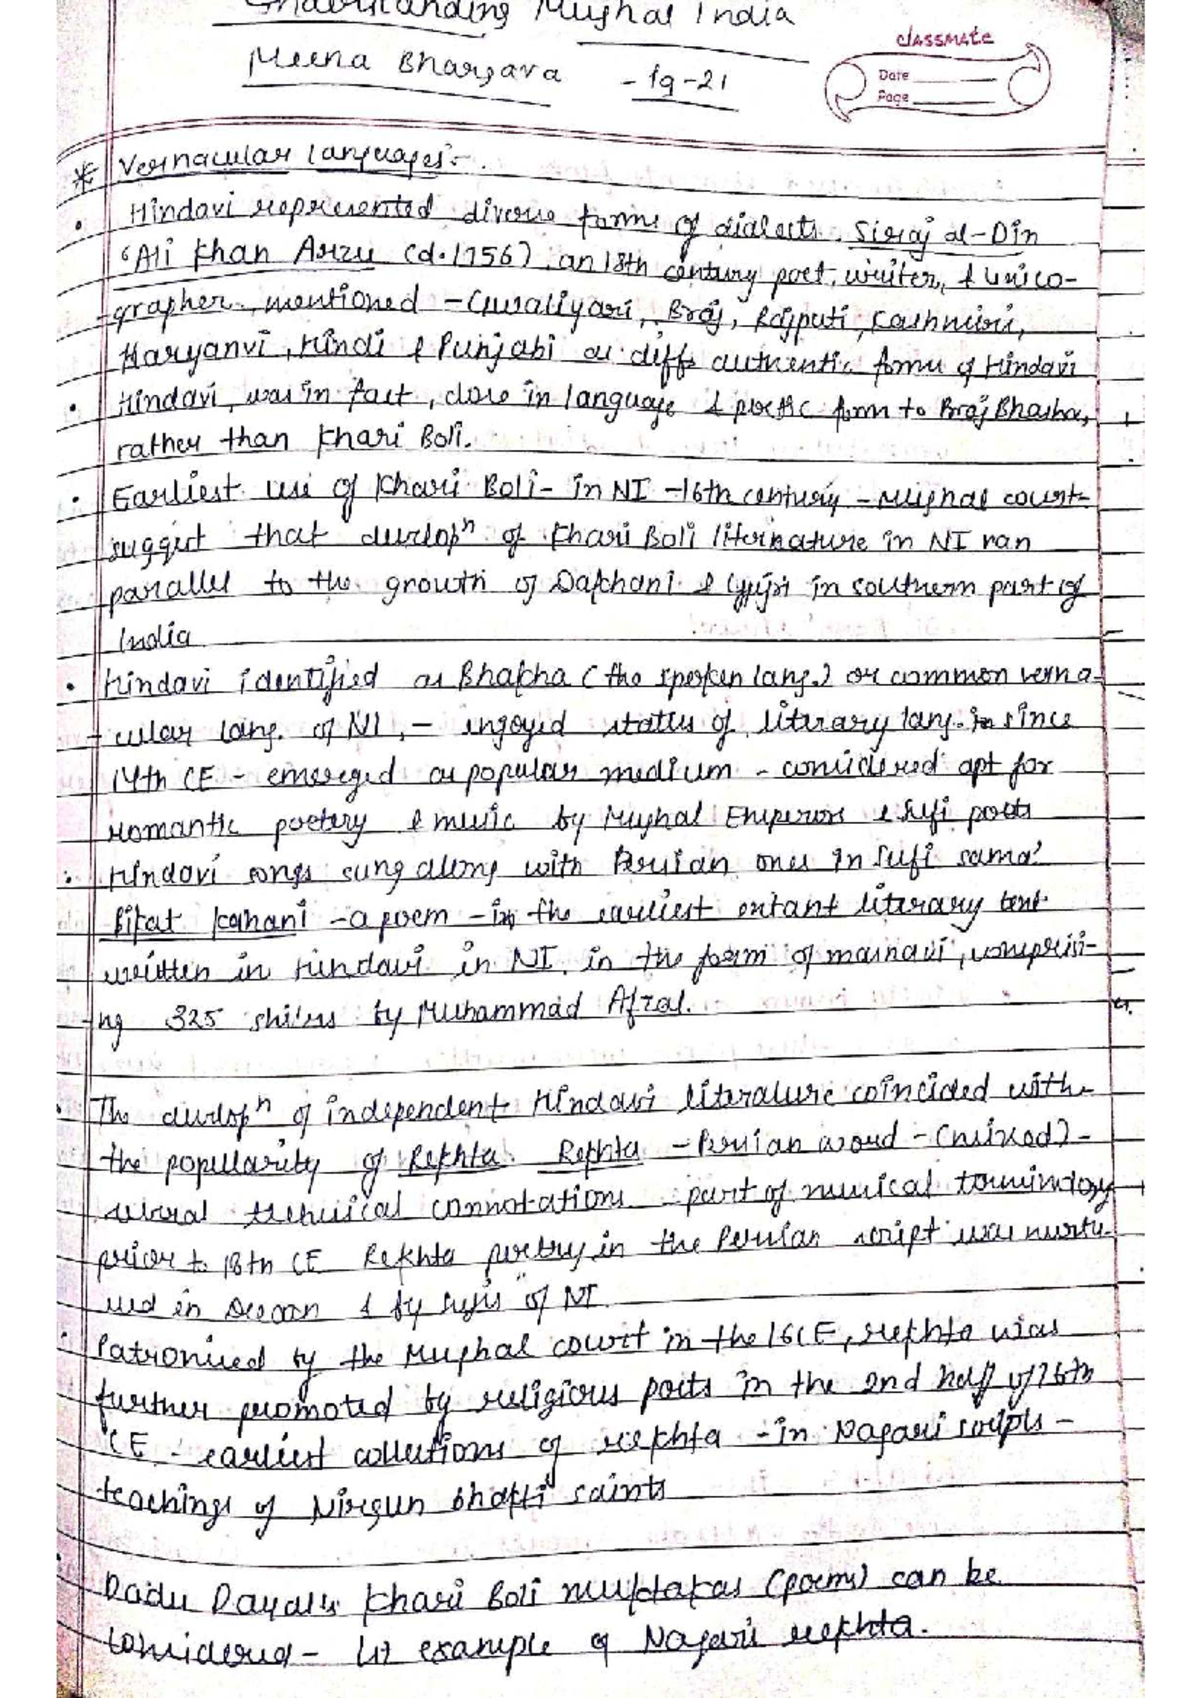 Understanding Mughal India
Meena Bhargava - 19-21
classmate
Date
Page
* Vernacular languages:-
• Hindavi represented diverse forms of dialects. Siraj al-Din
'Ali Khan Arzu (d.1756), an 18th century poet, writer, & lexico-
-grapher, mentioned - Gwaliyari, Braj, Rajputi, Kashmiri,
Haryanvi, Hindi & Punjabi as diff authentic forms of Hindavi
• Hindavi, was in fact, close in language & poetic form to Braj Bhasha,
rather than Khari Boli.
• Earliest use of Khari Boli- in NI -16th century - Mughal court-
suggest that developⁿ of Khari Boli literature in NI ran
parallel to the growth of Dakhani & Gujri in southern part of
India
• Hindavi identified as Bhakha (the spoken lang.) or common verna-
-cular lang. of NI, - enjoyed status of literary lang. since
14th CE - emerged as popular medium - considered apt for
romantic poetry & music by Mughal Emperors & Sufi poets
• Hindavi songs sung along with Persian ones in Sufi sama'
Bikat Kahani - a poem - is the earliest extant literary text
written in Hindavi in NI, in the form of masnavi, comprisi-
-ng 325 shi'ers by Muhammad Afzal.
• The developⁿ of independent Hindavi literature coincided with-
the popularity of Rekhta. Rekhta - Persian word - (mixed) -
several technical connotations - part of musical terminology
prior to 18th CE Rekhta poetry in the Persian script was nurtu-
red in Deccan & by Sufis of NI.
• Patronised by the Mughal court in the 16CE, rekhta was
further promoted by religious poets in the 2nd half of 16th
CE - earliest collections of rekhta - in Nagari scripts -
teachings of Nirgun bhakti saints
• Dadu Dayal's Khari Boli muktakas (poems) can be
considered - 1st example of Nagari rekhta.